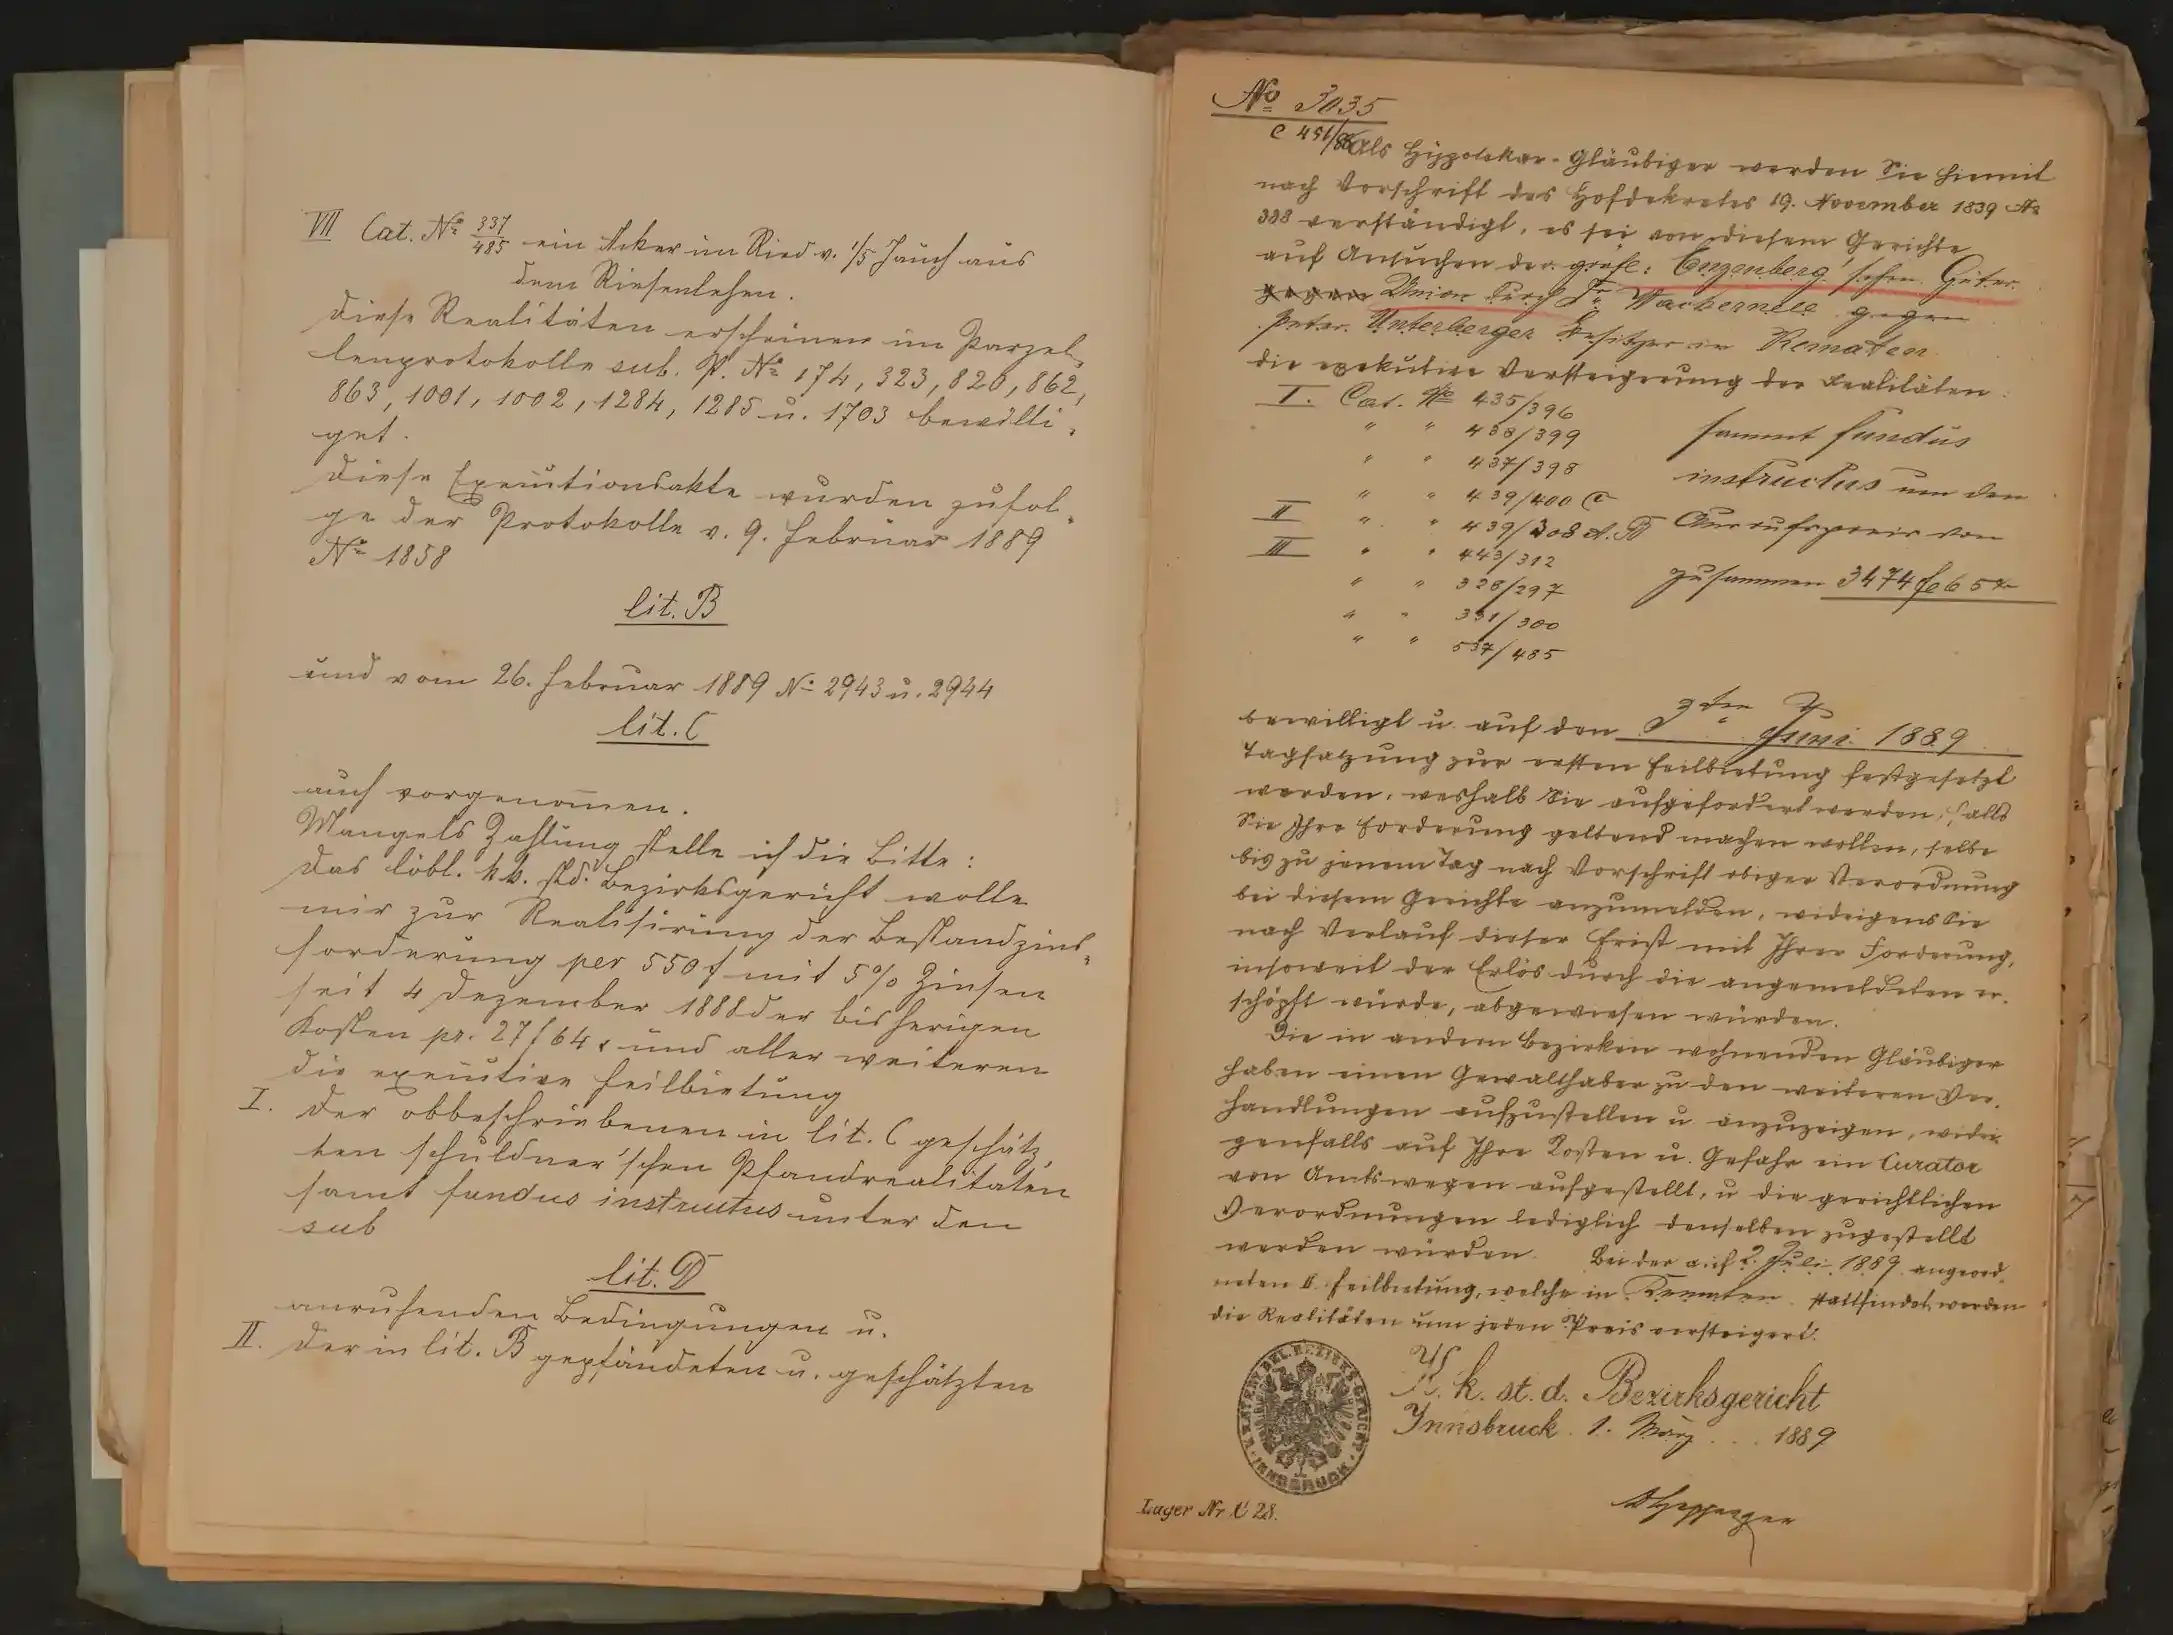 VII Cat. No 337/485 ein Acker im Ried v. 1/5 Jauch aus
dem Riesenlehen.
Diese Realitäten erscheinen im Parzel=
lenprotokolle sub. P. No 174, 323, 820, 862,
863, 1001, 1002, 1284, 1285 u. 1703 bewilli=
get.
Diese Executionsakte wurden zufol=
ge der Protokolle v. 9. Februar 1889
No 1858
lit. B
und vom 26. Februar 1889 No 2943 u. 2944
lit. C
auch vorgenommen.
Mangels Zahlung stelle ich die Bitte:
Das löbl. k.k. std. Bezirksgericht wolle
mir zur Realisirung der Bestandzins=
forderung per 550 f mit 5% Zinsen
seit 4 Dezember 1888 der bisherigen
Kosten pr. 27 f 64 x und aller weiteren
die executive Feilbietung
I. der obbeschriebenen in lit. C geschätz=
ten schuldner'schen Pfandrealitäten
samt fundus instructus unter den
sub
lit. D
anruhenden Bedingungen u.
II. der in lit. B gepfändeten u. geschätzten
No 3035
C 451/86
Als Hypotekar-Gläubiger werden Sie hiemit
nach Vorschrift des Hofdekretes 19. November 1839 No
388 verständigt, es sei von diesem Gerichte
auf Ansuchen der gräfl: Enzenberg'schen Güter
gegen Union durch Dr. Wackernell gegen
Peter Unterberger Besitzer in Kematen
die exekutive Versteigerung der Realitäten:
I. Cat. No 435/396
" " 438/399 sammt fundus
" " 437/398 instructus um den
" " 439/400 C
II " " 439/308 A. B Ausrufspreis von
III " " 443/312
" " 328/297 zusammen 3474 f 65 xr
" " 331/300
" " 537/485
bewilligt u. auf den 3ten Juni 1889
Tagsatzung zur ersten Feilbietung festgesetzt
worden, weshalb Sie aufgefordert werden, falls
Sie Ihre Forderung geltend machen wollen, selbe
bis zu jenem Tag nach Vorschrift obiger Verordnung
bei diesem Gerichte anzumelden, widrigens Sie
nach Verlauf dieser Frist mit Ihrer Forderung,
insoweit der Erlös durch die angemeldeten er=
schöpft würde, abgewiesen würden.
Die in andern Bezirken wohnenden Gläubiger
haben einen Gewalthaber zu den weiteren Ver=
handlungen aufzustellen u. anzuzeigen, widri=
genfalls auf Ihre Kosten u. Gefahr ein Curator
von Amtswegen aufgestellt, u. die gerichtlichen
Verordnungen lediglich denselben zugestellt
werden würden. Bei der auf 2. Juli 1889 angeord=
neten II. Feilbietung, welche in Kematen stattfindet, werden
die Realitäten um jeden Preis versteigert.
K. k. st. d. Bezirksgericht
Innsbruck 1. März 1889
Lager Nr. C 28.